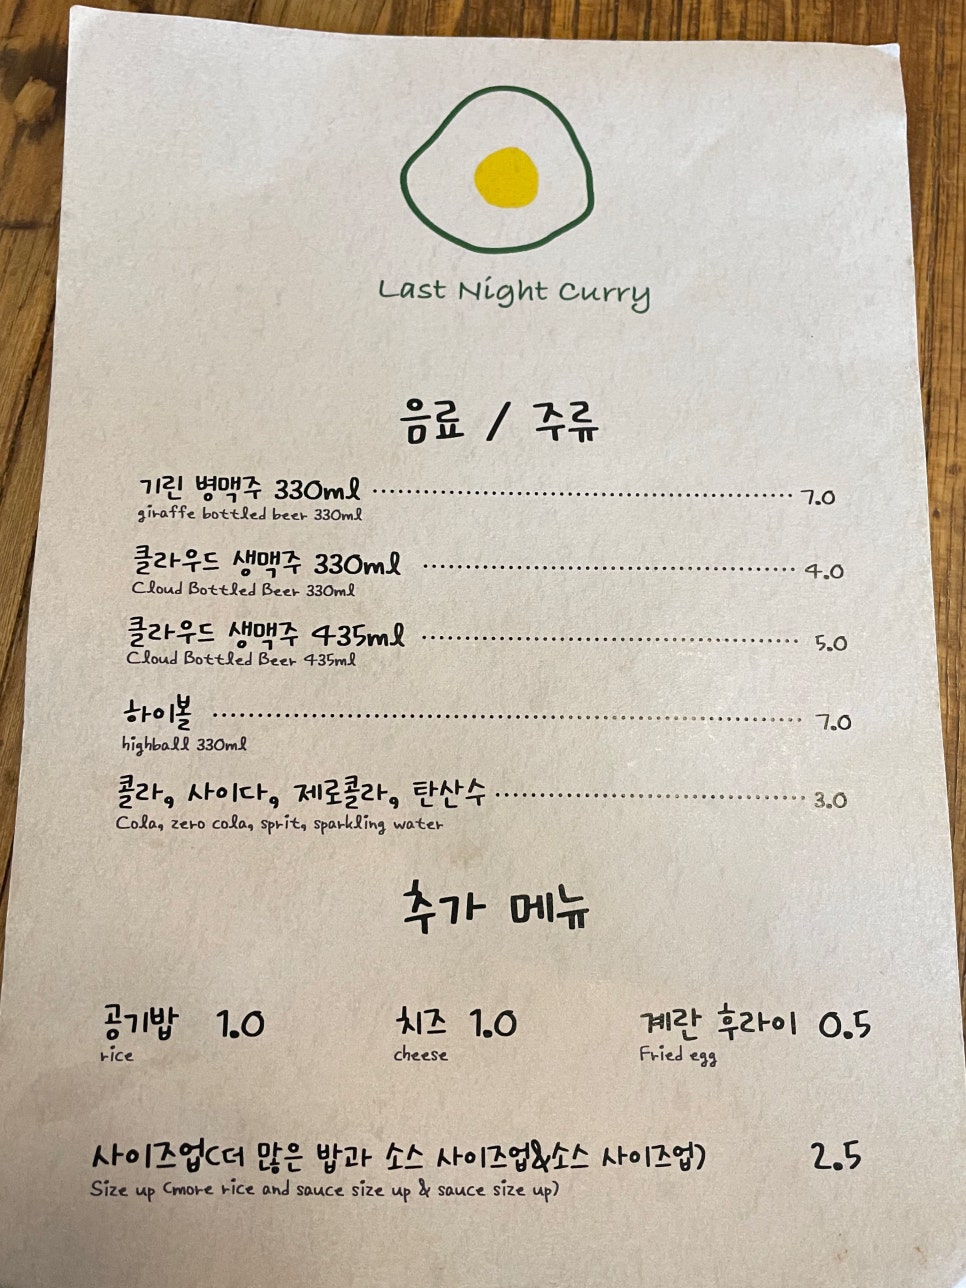 Last Night Curry
음료 / 주류
기린 병맥주 330ml 7.0
giraffe bottled beer 330ml
클라우드 생맥주 330ml 4.0
Cloud Bottled Beer 330ml
클라우드 생맥주 435ml 5.0
Cloud Bottled Beer 435ml
하이볼 7.0
highball 330ml
콜라, 사이다, 제로콜라, 탄산수 3.0
Cola, zero cola, sprit, sparkling water
추가 메뉴
공기밥 1.0 치즈 1.0 계란 후라이 0.5
rice cheese Fried egg
사이즈업(더 많은 밥과 소스 사이즈업&소스 사이즈업) 2.5
Size up (more rice and sauce size up & sauce size up)